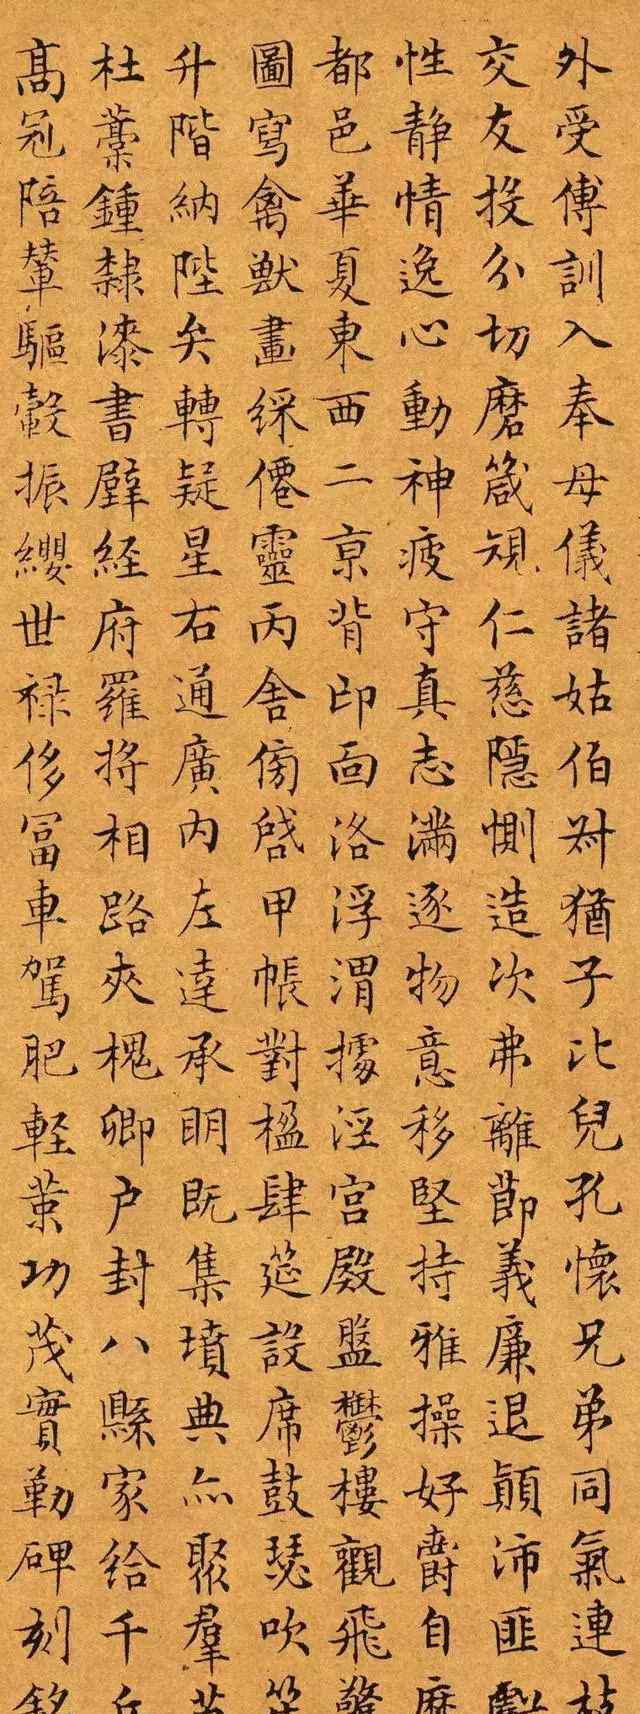 外受傅訓入奉母儀諸姑伯叔猶子比兒孔懷兄弟同氣連枝
交友投分切磨箴規仁慈隱惻造次弗離節義廉退顛沛匪虧
性静情逸心動神疲守真志滿逐物意移堅持雅操好爵自縻
都邑華夏東西二京背邙面洛浮渭據涇宮殿盤鬱樓觀飛驚
圖寫禽獸畫綵僊靈丙舍傍啓甲帳對楹肆筵設席鼓瑟吹笙
升階納陛弁轉疑星右通廣内左達承明既集墳典亦聚羣英
杜藁鍾隸漆書壁経府羅将相路夾槐卿户封八縣家給千兵
髙冠陪輦驅轂振纓世禄侈冨車駕肥軽䇿功茂實勒碑刻銘